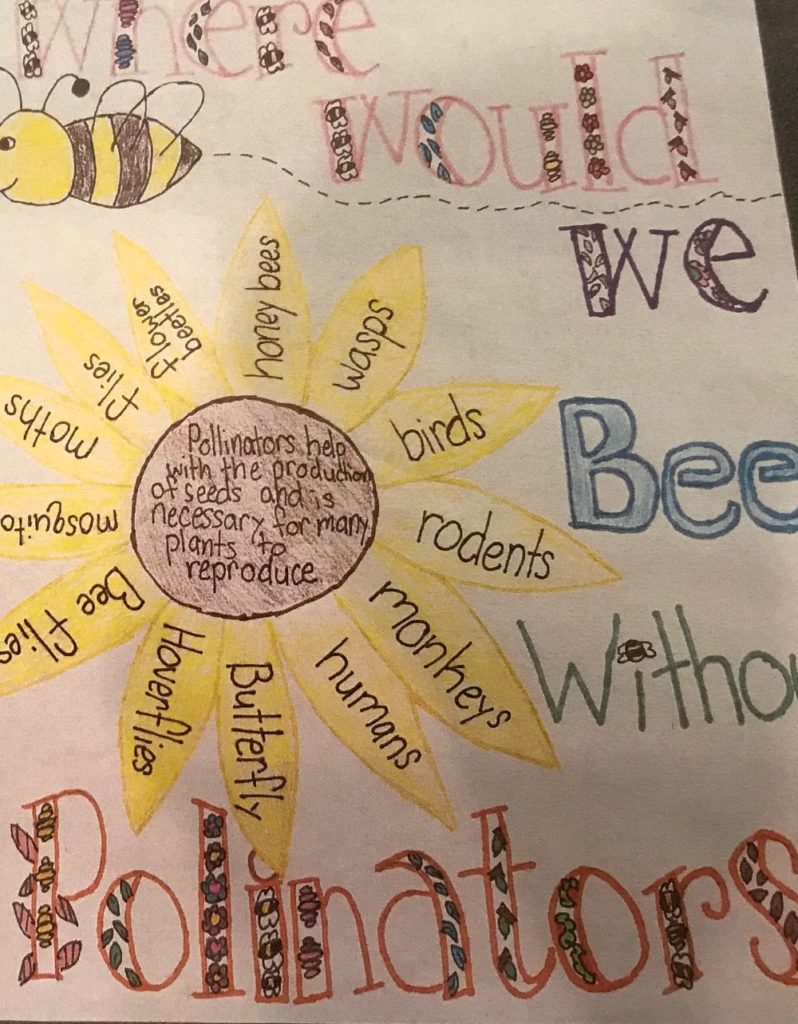 Where
would
we
Bee
Witho
Polinators
honey bees
wasps
birds
rodents
monkeys
humans
Butterfly
Hoverflies
Bee flies
mosquito
moths
flies
flower
beetles
Pollinators help
with the production
of seeds and is
necessary for many
plants to
reproduce